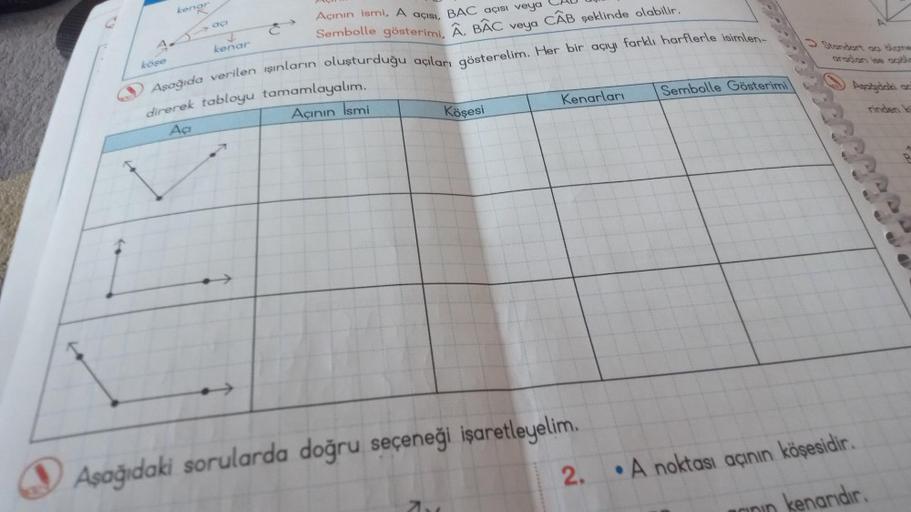 kenar
açı
A
C
köşe
kenar
Açının ismi, A açısı, BAC açısı veya
Sembolle gösterimi, Â, BÂC veya CÂB şeklinde olabilir.
Aşağıda verilen ışınların oluşturduğu açıları gösterelim. Her bir açıyı farklı harflerle isimlen-
direrek tabloyu tamamlayalım.
Açı Açının İsmi Köşesi Kenarları Sembolle Gösterimi
Aşağıdaki sorularda doğru seçeneği işaretleyelim.
2. • A noktası açının köşesidir.
kenarıdır.
A
Standart açı
Aşağıdaki
rinden